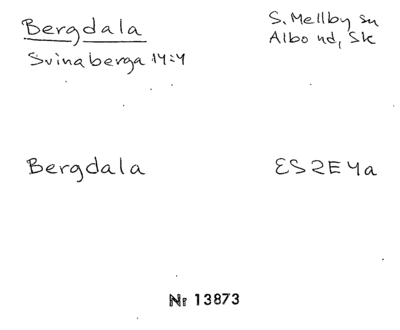 Bergdala
S. Mellby sn
Svinaberga 14:4
Albo hd, Sk
Bergdala
ES2E4a
Nr 13873